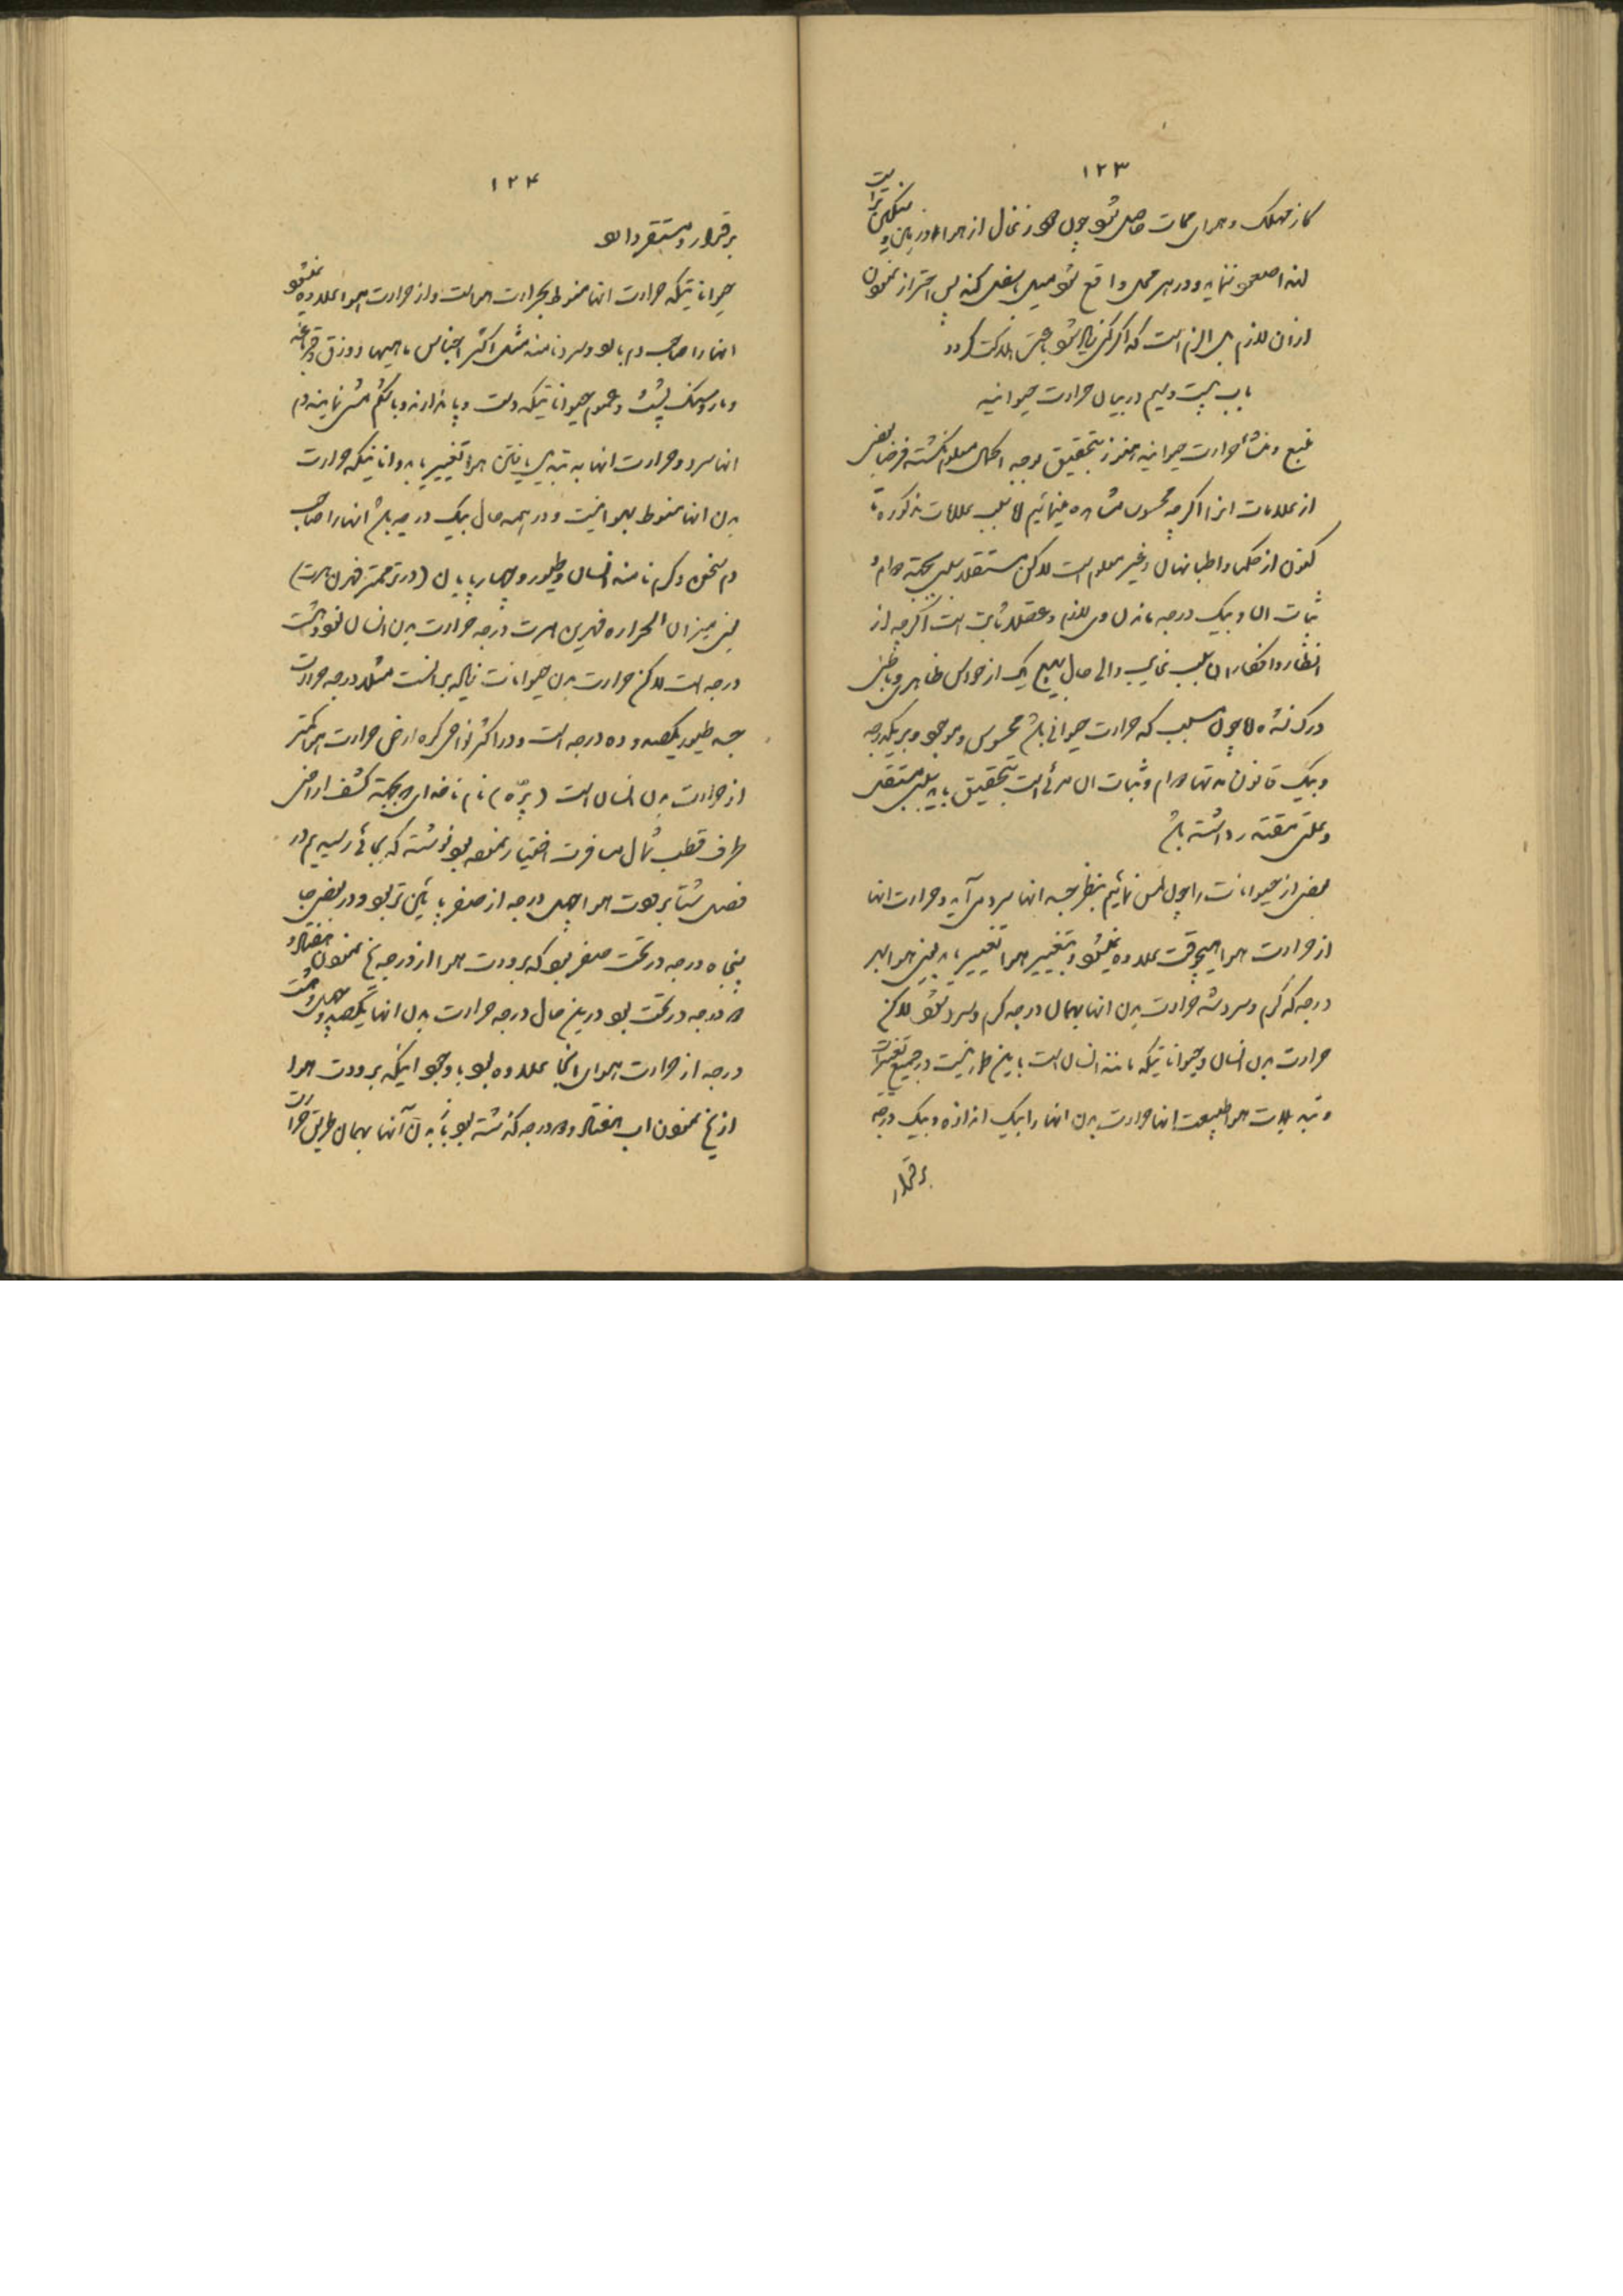 ۱۲۳
کاز مهلک و هوای ممات حاصل شود چون بخور زغال از هوا در پایین و سنگین تر است
لهذا صعود ننماید و در هر محل واقع شود میل باسفل کند پس احتراز نمودن
از آن لازم بل الزم است که اگر کثیر باشد باعث هلاکت گردد
باب بیست و سیم در بیان حرارت حیوانیه
منبع و منشأ حرارت حیوانیه هنوز بتحقیق بوجه اکمال معلوم نگشته فرضا بعضی
از علامات انرا اگرچه محسوس مشاهده مینمائیم اما سبب علامات مذکوره تا
کنون از حکما و اطبا نهان و غیر معلوم است لاکن مستقلا سببی بجهة دوام و
ثبات آن و بیک درجه ماندن وی لازم و عقلا ثابت است اگرچه از
انظار و افکار آن سبب غایب و الی حال بهیچ یک از حواس ظاهری و باطنی
درک نشده اما چون سبب که حرارت حیوانی باشد محسوس و موجود و بر یکدرجه
و بیک قانون مدتها دوام و ثبات آن مرئی است بتحقیق باید سببی مستقل
و علتی مقتدر داشته باشد
بعضی از حیوانات را چون لمس نمائیم بنظر جسد انها سرد می آید و حرارت انها
از حرارت هوا هیچوقت علاوه نمیشود و بتغییر هوا تغییر یابد یعنی هوا بهر
درجه که گرم و سرد شد حرارت بدن انها بهمان درجه گرم و سرد شود لاکن
حرارت بدن انسان و حیواناتیکه مانند انسان است باین طور نیست در جمیع تغییرات
و تبدلات هوا طبیعت انها حرارت بدن انها را بیک اندازه و بیک درجه
برقرار
۱۲۴
برقرار و مستقر دارد
حیواناتیکه حرارت انها منوط بحرارت هواست و از حرارت هوا علاوه نمیشود
انها را صاحب دم بارد و سرد نامند مثل اکثر اجناس ماهیها و وزق و قرباغه
و مار و سنگ پشت و عموم حیواناتیکه دست و پا ندارند و با شکم مشی نمایند دم
انها سرد و حرارت انها به تبدیل یافتن هوا تغییر یابد و اناتیکه حرارت
بدن انها منوط بهوا نیست و در همه حال بیک درجه باشد انها را صاحب
دم سخن و گرم نامند انسان و طیور و چهارپایان (در ترجمتر فهرن هیت)
یعنی میزان الحراره فهرین هیت درجه حرارت بدن انسان نود و هشت
درجه است لاکن حرارت بدن حیوانات زیاده بر انست مثلا درجه حرارت
جسد طیور یکصد و ده درجه است و در اکثر نواحی کره ارض حرارت هوا کمتر
از حرارت بدن انسان است (پرّه) نام ناخدای که بجهة کشف اراضی
طرف قطب شمال مسافرت اختیار نموده بود نوشته که بجائی رسیدیم در
فصل شتا برودت هوا چهل درجه از صفر پائین تر بود و در بعضی جا
پنجاه درجه در تحت صفر بود که برودت هوا از درجه یخ نمودن هفتاد و
دو درجه در تحت بود در این حال درجه حرارت بدن انها یکصد و چهل و هشت
درجه از حرارت هوای انجا علاوه بود با وجود اینکه برودت هوا
از یخ نمودن اب هفتاد و دو درجه گذشته بود بدن آنها بهمان طریق حرارت